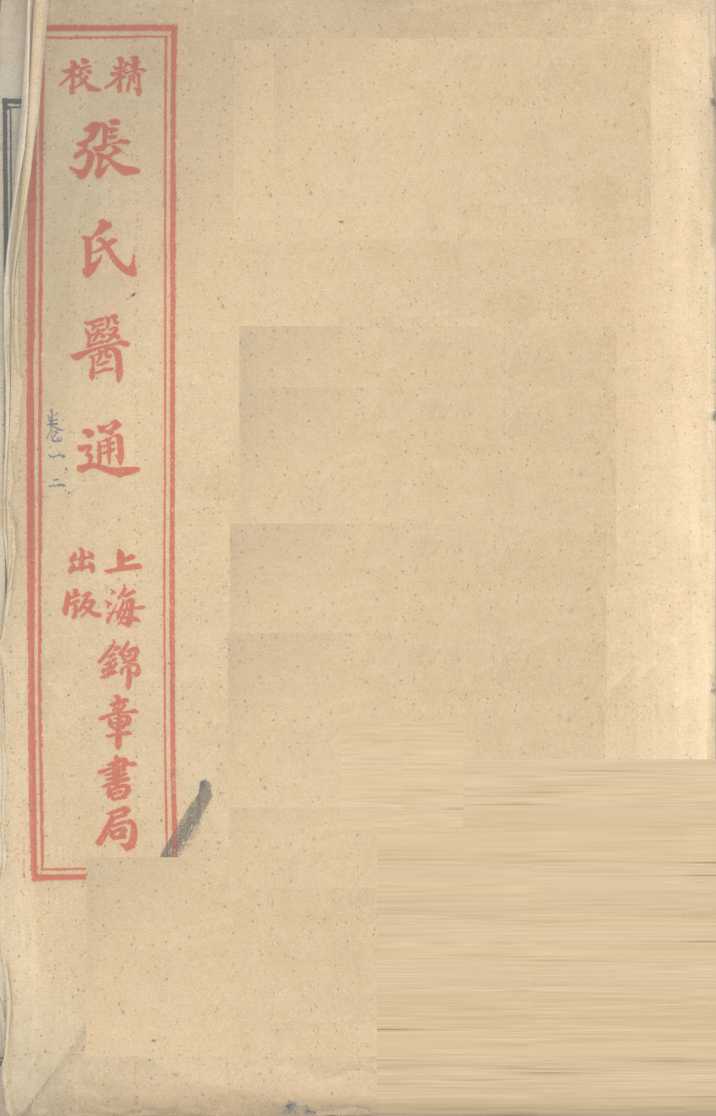 精校
張氏醫通
上海錦章書局
出版
卷一、二